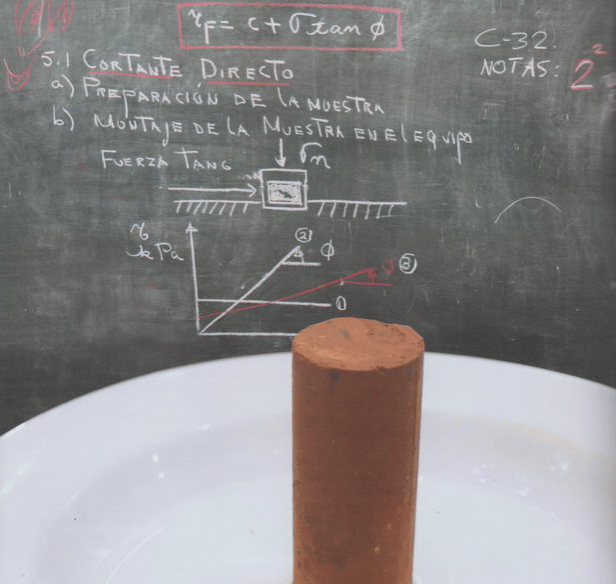 τF = C + σ tan φ
C-32.
NOTAS: 2²
5.1 CORTANTE DIRECTO
a) PREPARACIÓN DE LA MUESTRA
b) MONTAJE DE LA MUESTRA EN EL EQUIPO
FUERZA TANG σn
τ
kPa
② φ
φ ③
①